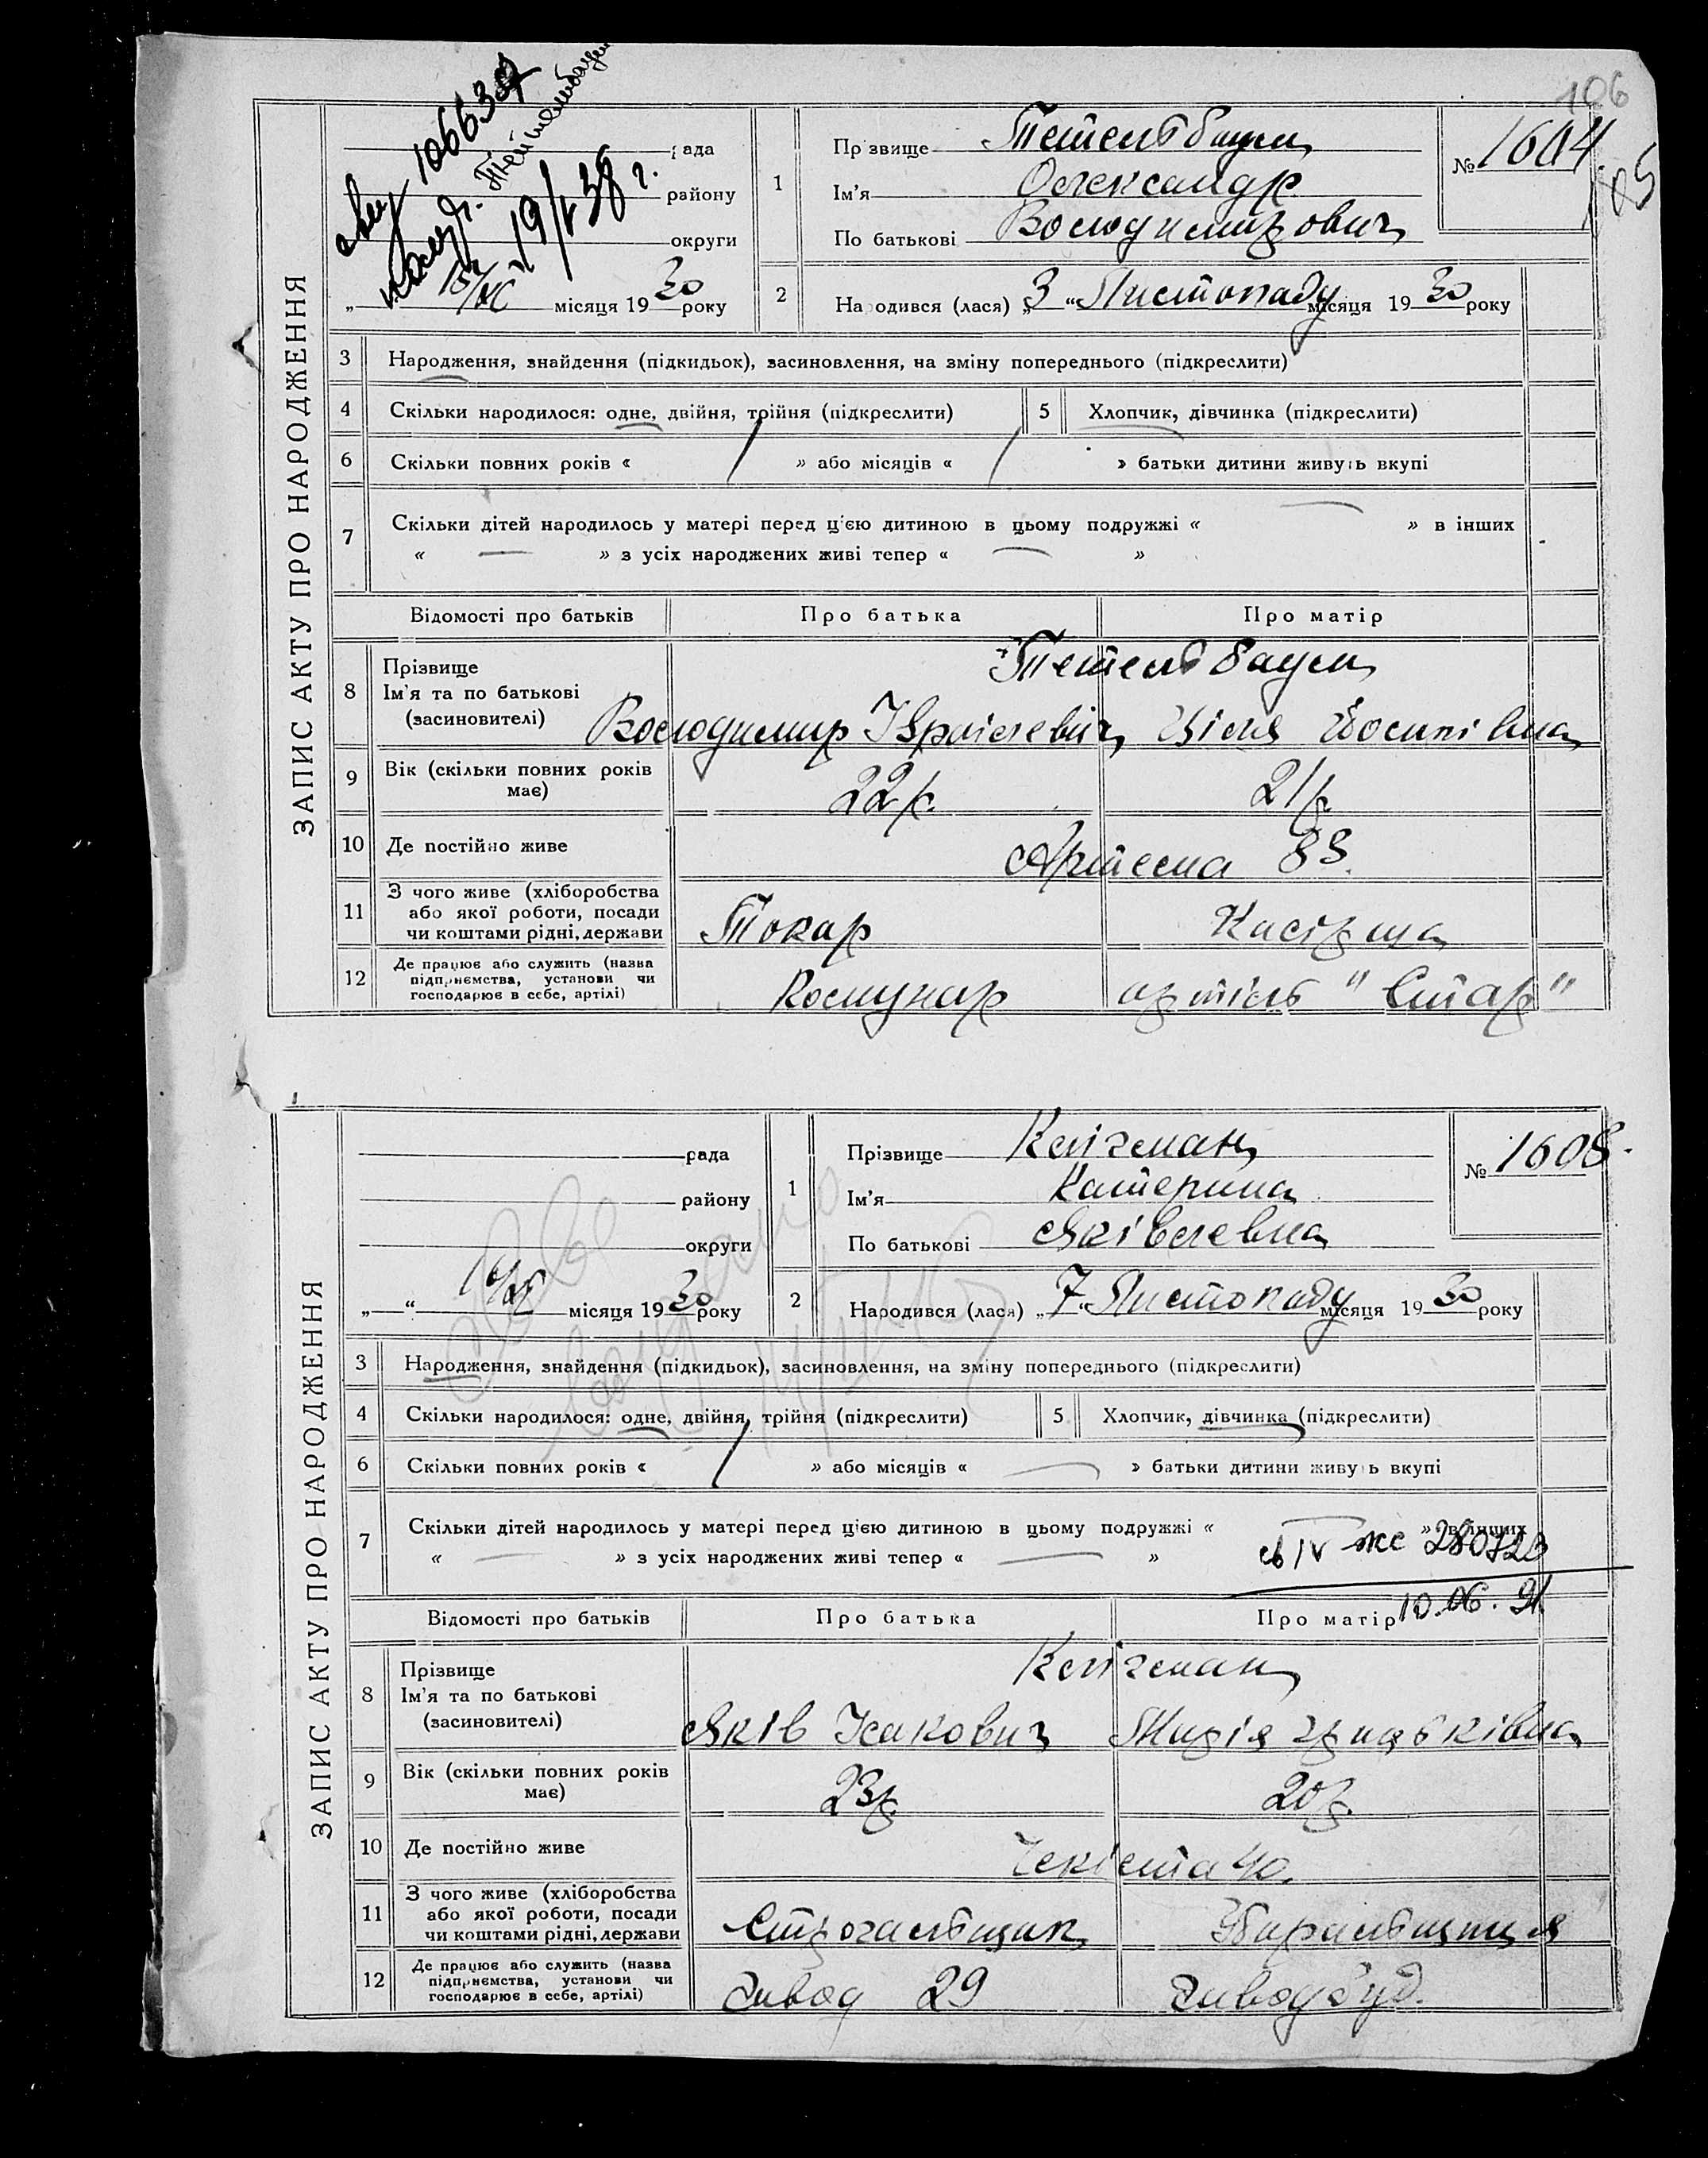 106
ЗАПИС АКТУ ПРО НАРОДЖЕННЯ
106639
19/V 38 г.
рада
району
округи
„ 15/XI місяця 1930 року
1
Прізвище Тетельбаум
Ім'я Олександр
По батькові Володимирович
№ 1604
105
2
Народився (лася) „3“ Листопаду місяця 1930 року
3 Народження, знайдення (підкидьок), засиновлення, на зміну попереднього (підкреслити)
4 Скільки народилося: одне, двійня, трійня (підкреслити) 5 Хлопчик, дівчинка (підкреслити)
6 Скільки повних років « / » або місяців « / » батьки дитини живуть вкупі
7 Скільки дітей народилось у матері перед цією дитиною в цьому подружжі « — » в інших
« — » з усіх народжених живі тепер « — »
Відомості про батьків Про батька Про матір
8 Прізвище Ім'я та по батькові (засновителі)
Тетельбаум
Володимир Ізраілевіч Ціля Йосипівна
9 Вік (скільки повних років має) 22 р. 21 р.
10 Де постійно живе Артема 83.
11 З чого живе (хліборобства або якої роботи, посади чи коштами рідні, держави Токар Касірша
12 Де працює або служить (назва підприємства, установи чи господарює в себе, артілі) Комунар артіль "Стар"
ЗАПИС АКТУ ПРО НАРОДЖЕННЯ
рада
району
округи
„ “ 10/XI місяця 1930 року
1
Прізвище Клігман
Ім'я Катерина
По батькові Яківлевна
№ 1608.
2
Народився (лася) „7“ Листопаду місяця 1930 року
3 Народження, знайдення (підкидьок), засиновлення, на зміну попереднього (підкреслити)
4 Скільки народилося: одне, двійня, трійня (підкреслити) 5 Хлопчик, дівчинка (підкреслити)
6 Скільки повних років « / » або місяців « — » батьки дитини живуть вкупі
7 Скільки дітей народилось у матері перед цією дитиною в цьому подружжі « — » в інших
« — » з усіх народжених живі тепер « — »
IV ЖС 280723
10.06.91
Відомості про батьків Про батька Про матір
8 Прізвище Ім'я та по батькові (засиновителі)
Клігман
Яків Ісакович Марія Грицьківна
9 Вік (скільки повних років має) 23 р. 20 р.
10 Де постійно живе Чекіста 40.
11 З чого живе (хліборобства або якої роботи, посади чи коштами рідні, держави Строгальщик Збиральщиця
12 Де працює або служить (назва підприємства, установи чи господарює в себе, артілі) Завод 29 Заводбуд.